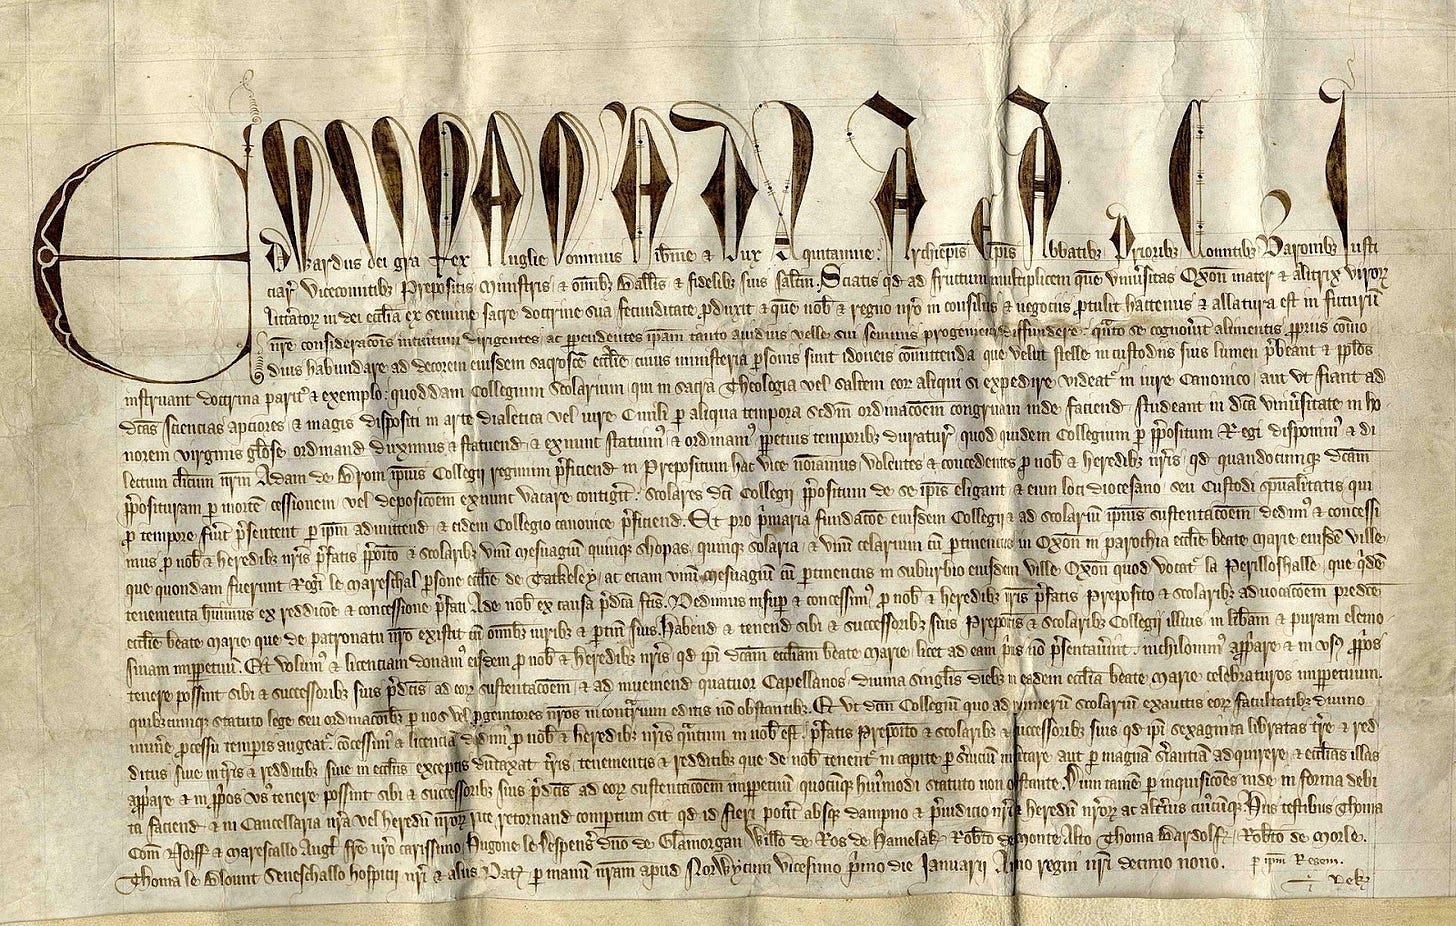 EDwardus dei gra Rex Anglie Dominus Hibnie & Dux Aquitannie. Archiepis Epis Abbatibz Prioribz Comitibz Baronibz Justi
ciar Vicecomitibz Prepositis Ministris & omibz Ballis & fidelibz suis saltm. Sciatis qd ad fructum multiplicem quem Univsitas Oxon mater & altrix viror
littator in dei ecclia ex semine sacre doctrine sua fecunditate pduxit & que nob & regno nro in consiliis & negociis ptulit hactenus & allatura est in futuru
nre consideracois intuitum dirigentes, ac ppendentes ipam tanto avidius velle sui seminis progeniem diffundere, qnto se cognovit alimentis ppriis como
dius habundare ad decorem eiusdem sacrosce ecclie cuius ministeria psonis sunt idoneis comittenda que velut stelle in custodiis suis lumen pbeant & pplos
instruant doctrina parit & exemplo, quoddam Collegium Scolarium qui in sacra Theologia vel saltem eor aliqui si expedire videat in iure Canonico, aut ut fiant ad
dictas sciencias apciores & magis dispositi in arte dialetica vel iure Civili p aliqua tempora scdm ordinacoem congruam inde faciend studeant in dca univsitate in ho
norem virginis glose ordinand duximus & statuend & exnunc statuim & ordinam ppetuis temporibz duratur quod quidem Collegium p ppositum Regi disponim & di
lectum clicum nrm Adam de Brom ipius Collegii regimini pficiend in Prepositum hac vice noiamus, volentes & concedentes p nob & heredibz nris qd quandocunqz dcam
pposituram p morte cessionem vel deposicoem exnunc vacare contigit, scolares dci Collegii ppositum de se ipis eligant & eum loci diocesano seu Custodi spualitatis qui
p tempore fuit psentent p ipm admittend & eidem Collegio canonice pficiend. Et pro pmaria fundacoe eiusdem Collegii & ad scolariu ipius sustentacoem dedim & concessi
mus p nob & heredibz nris pfatis pposito & scolaribz unu mesuagiu quinqz shopas, quinqz solaria & unu celarium cu ptinenciis in Oxon in parochia ecclie beate marie eiusde ville
que quondam fuerunt Rogi le Mareschal psone ecclie de Tackeley, ac eciam unu mesuagiu cu ptinentiis in suburbio eiusdem ville Oxon quod vocat la Perilloshalle, que qdem
tenementa huimus ex reddicoe & concessione pfati Ade nob ex causa pdca fcis. Dedimus insup & concessim p nob & heredibz nris pfatis Preposito & scolaribz advocacoem predce
ecclie beate marie que de patronatu nro existit cu omibz iuribz & ptin suis. Habend & tenend sibi & successoribz suis Prepoitis & Scolaribz Collegii illius in libam & puram elemo
sinam imppetuu. Et volum & licenciam donam eisdem p nob & heredibz nris qd ipi dcam eccliam beate marie licet ad eam pus no psentavint, nichilomin appriare & in usus pprios
tenere possint sibi & successoribz suis pdcis ad eor sustentacoem & ad inveniend quatuor Capellanos divina singlis diebz in eadem ecclia beate marie celebraturos imppetuum,
quibuscunqz statuto lege seu ordinacoibz p nos vel pgenitores nros in contrium editis no obstantibz. Et ut dcm Collegium quo ad numeru scolariu exauctis eor facultatibz divino
munere pcessu tempis augeat, concessim & licencia dedim p nob & heredibz nris qntum in nob est pfatis Preposito & scolaribz & successoribz suis qd ipi sexaginta libratas tre & red
ditus sive in tris & redditibz sive in ecclis exceptis dumtaxat tris, tenementis & redditibz que de nob tenent in capite p sviciu militare aut p magnam sriantiam adquirere, & ecclias illas
appriare & in pprios us tenere possint sibi & successoribz suis pdcis ad eor sustentacoem imppetuum quocunqz huiusmodi statuto non obstante. Dum tamen p inquisicoes inde in forma debi
ta faciend & in Cancellaria nra vel heredu nror rite retornand comptum sit qd id fieri potit absqz dampno & piudicio nri & heredu nror ac altius cuiuscunqz. Hiis testibus Thoma
Com Norff & Marescallo Angl fre nro carissimo Hugone le Despens dno de Glamorgan Willo de Ros de Hamelak Robto de Monte Alto Thoma Bardolf Robto de Morle.
Thoma le Blount Senescallo hospicii nri & aliis Dat p manu nram apud Norwycum vicesimo pmo die Januarii Anno regni nri decimo nono.
p ipm Regem.